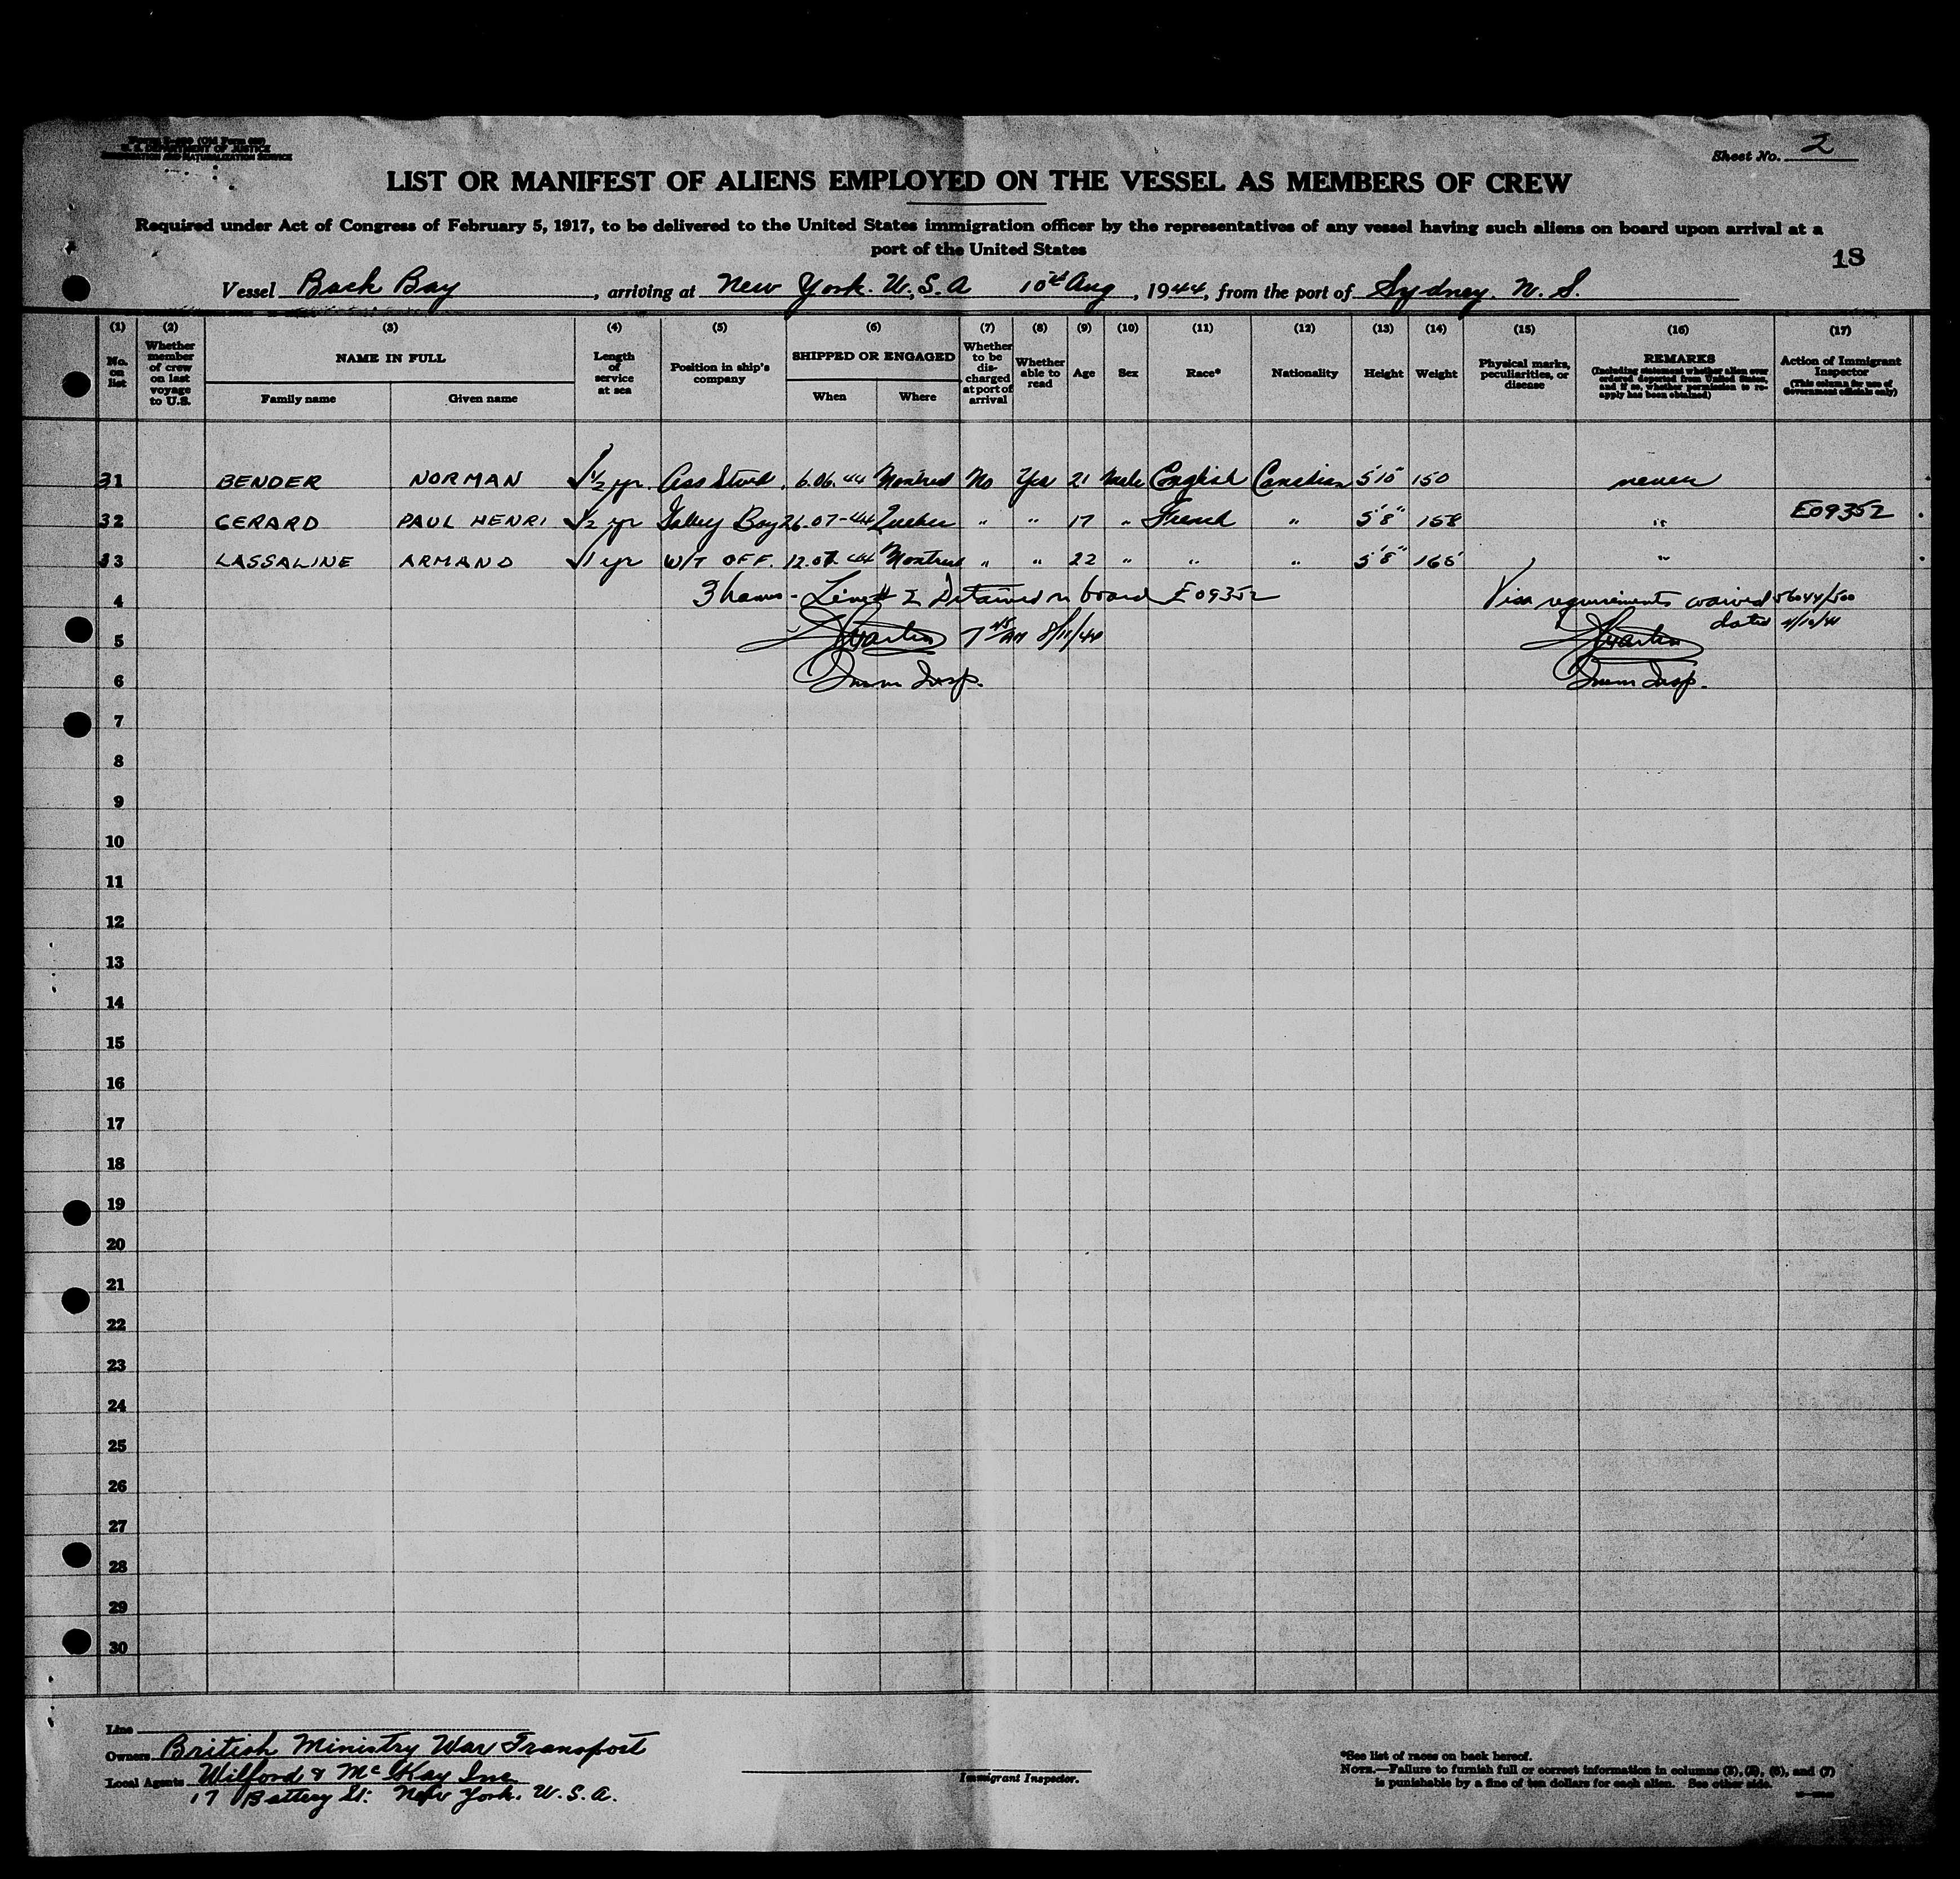 U. S. DEPARTMENT OF JUSTICE
IMMIGRATION AND NATURALIZATION SERVICE
Sheet No. 2
LIST OR MANIFEST OF ALIENS EMPLOYED ON THE VESSEL AS MEMBERS OF CREW
Required under Act of Congress of February 5, 1917, to be delivered to the United States immigration officer by the representatives of any vessel having such aliens on board upon arrival at a
port of the United States
18
Vessel Back Bay, arriving at New York. U.S.A 10th Aug, 1944, from the port of Sydney. N. S.
(1) (2) (3) (4) (5) (6) (7) (8) (9) (10) (11) (12) (13) (14) (15) (16) (17)
No. on list
Whether member of crew on last voyage to U.S.
NAME IN FULL
Family name Given name
Length of service at sea
Position in ship's company
SHIPPED OR ENGAGED
When Where
Whether to be discharged at port of arrival
Whether able to read
Age
Sex
Race*
Nationality
Height
Weight
Physical marks, peculiarities, or disease
REMARKS
(Including statement whether alien ever ordered deported from United States, and if so, whether permission to re-apply has been obtained)
Action of Immigrant Inspector
(This column for use of Government officials only)
31 BENDER NORMAN 1½ yr. Ass Stwd. 6.06.44 Montreal No Yes 21 Male English Canadian 5'10" 150 never
32 GERARD PAUL HENRI ½ yr Galley Boy 26.07-44 Quebec " " 17 " French " 5'8" 158 " E09352
33 LASSALINE ARMAND 1 yr W/T OFF. 12.07.44 Montreal " " 22 " " " 5'8" 165 "
4 3 names - Line # 2 Detained on board E09352 Visa requirements waived 56044/500
5 7 45 AM 8/11/44 dated
6 Imm Insp. Imm Insp.
7
8
9
10
11
12
13
14
15
16
17
18
19
20
21
22
23
24
25
26
27
28
29
30
Line
Owners British Ministry War Transport
Local Agents Wilford & McKay Inc
17 Battery St. New York. U.S.A.
Immigrant Inspector.
*See list of races on back hereof.
NOTE.—Failure to furnish full or correct information in columns (2), (5), (6), and (7)
is punishable by a fine of ten dollars for each alien. See other side.